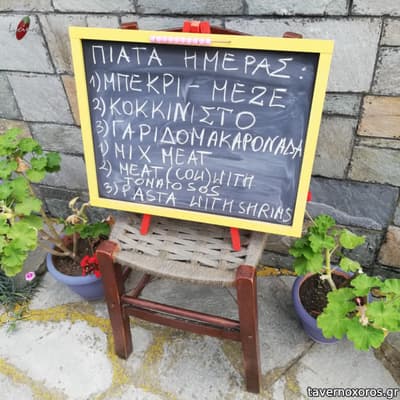 ΠΙΑΤΑ ΗΜΕΡΑΣ:
1) ΜΠΕΚΡΙ - ΜΕΖΕ
2) ΚΟΚΚΙΝΙΣΤΟ
3) ΓΑΡΙΔΟΜΑΚΑΡΟΝΑΔΑ
1) MIX MEAT
2) MEAT (COW) WITH
TOMATO SOS
3) PASTA WITH SHRIAS
tavernoxoros.gr